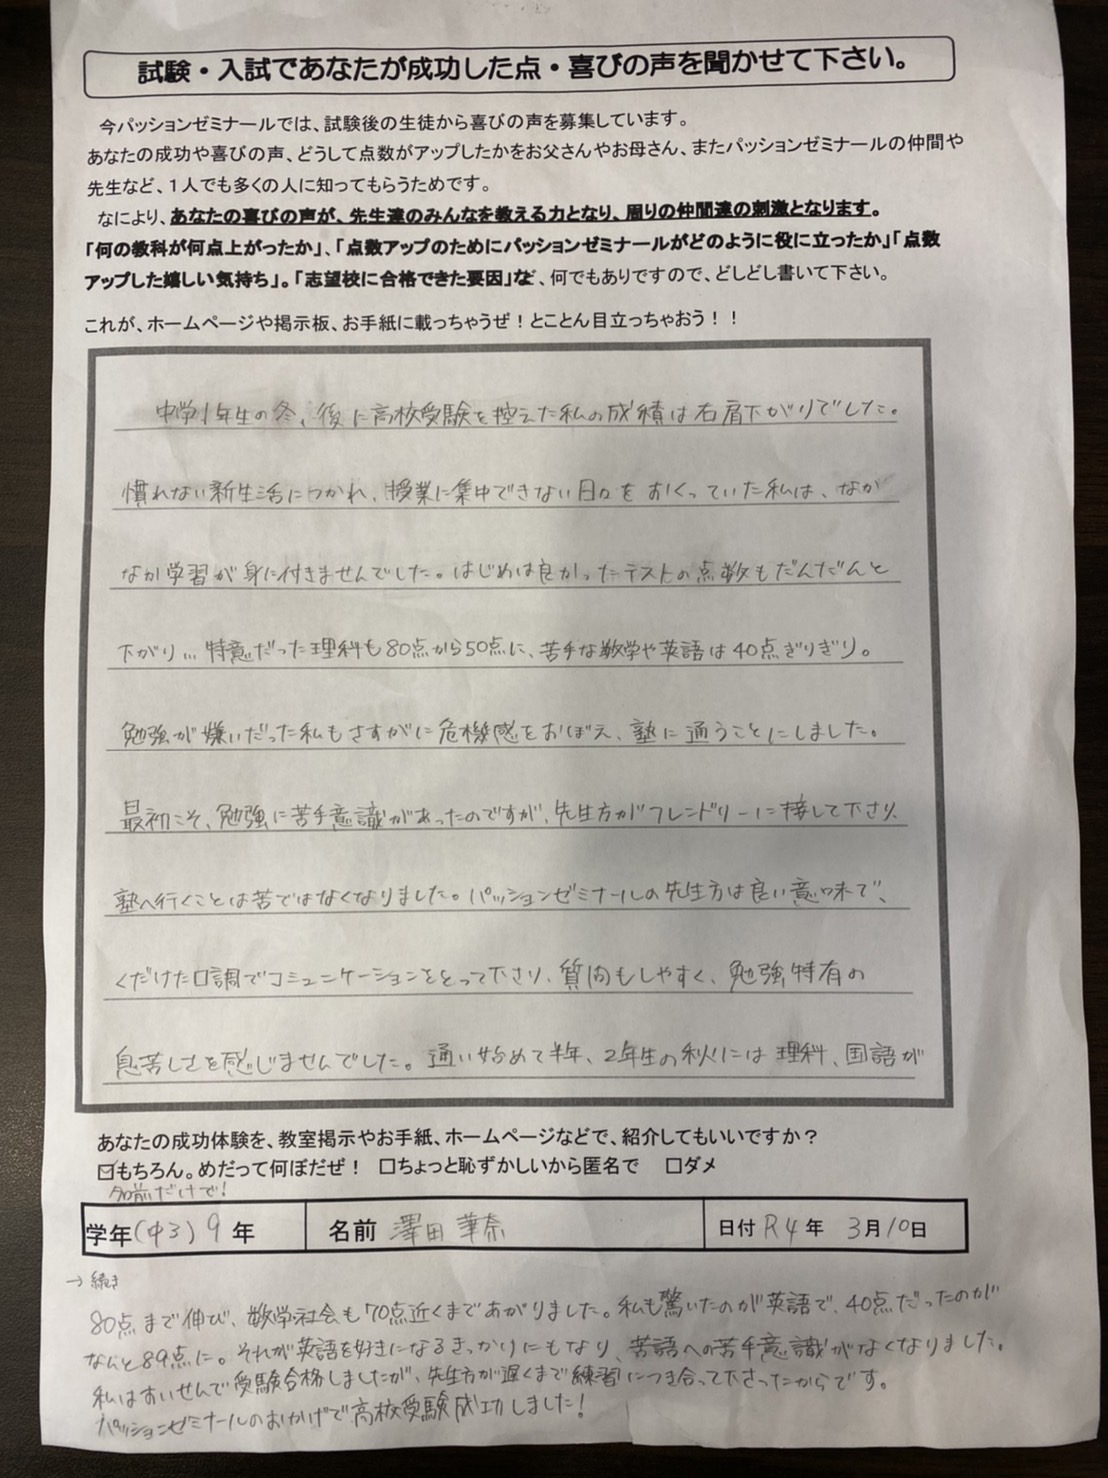 試験・入試であなたが成功した点・喜びの声を聞かせて下さい。
今パッションゼミナールでは、試験後の生徒から喜びの声を募集しています。
あなたの成功や喜びの声、どうして点数がアップしたかをお父さんやお母さん、またパッションゼミナールの仲間や
先生など、1人でも多くの人に知ってもらうためです。
なにより、あなたの喜びの声が、先生達のみんなを教える力となり、周りの仲間達の刺激となります。
「何の教科が何点上がったか」、「点数アップのためにパッションゼミナールがどのように役に立ったか」「点数
アップした嬉しい気持ち」。「志望校に合格できた要因」など、何でもありですので、どしどし書いて下さい。
これが、ホームページや掲示板、お手紙に載っちゃうぜ！とことん目立っちゃおう！！
中学1年生の冬、後に高校受験を控えた私の成積は右肩下がりでした。
慣れない新生活につかれ、授業に集中できない日々をおくっていた私は、なか
なか学習が身に付きませんでした。はじめは良かったテストの点数もだんだんと
下がり…特意だった理科も80点から50点に、苦手な数学や英語は40点ぎりぎり。
勉強が嫌いだった私もさすがに危機感をおぼえ、塾に通うことにしました。
最初こそ、勉強に苦手意識があったのですが、先生方がフレンドリーに接して下さり、
塾へ行くことは苦ではなくなりました。パッションゼミナールの先生方は良い意味で、
くだけた口調でコミュニケーションをとって下さり、質問もしやすく、勉強特有の
息苦しさを感じませんでした。通い始めて半年、2年生の秋には理科、国語が
あなたの成功体験を、教室掲示やお手紙、ホームページなどで、紹介してもいいですか？
☑もちろん。めだって何ぼだぜ！ □ちょっと恥ずかしいから匿名で □ダメ
名前だけで！
学年(中3)9年 名前 澤田 華奈 日付 R4年 3月10日
→続き
80点まで伸び、数学社会も70点近くまであがりました。私も驚いたのが英語で、40点だったのが
なんと89点に。それが英語を好きになるきっかけにもなり、苦語への苦手意識がなくなりました。
私はすいせんで受験合格しましたが、先生方が遅くまで練習につき合って下さったからです。
パッションゼミナールのおかげで高校受験成功しました！